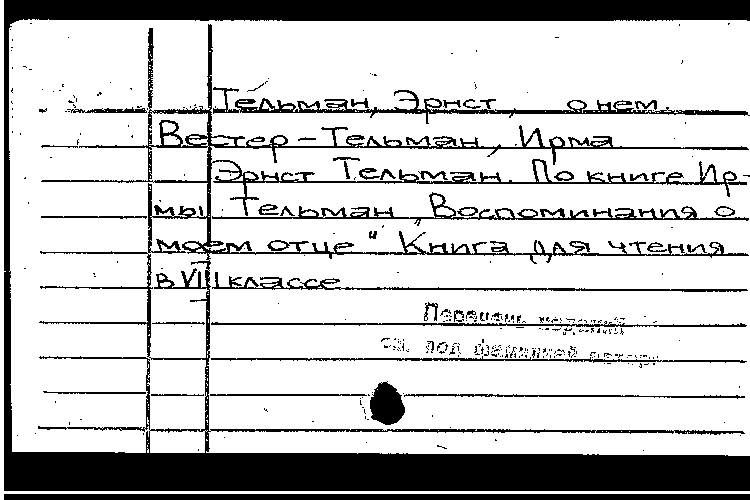 Тельман, Эрнст, о нем.
Вестер-Тельман, Ирма
Эрнст Тельман. По книге Ир-
мы Тельман „Воспоминания о
моем отце" Книга для чтения
в VIII классе
Перечень изданий
см. под фамилией автора